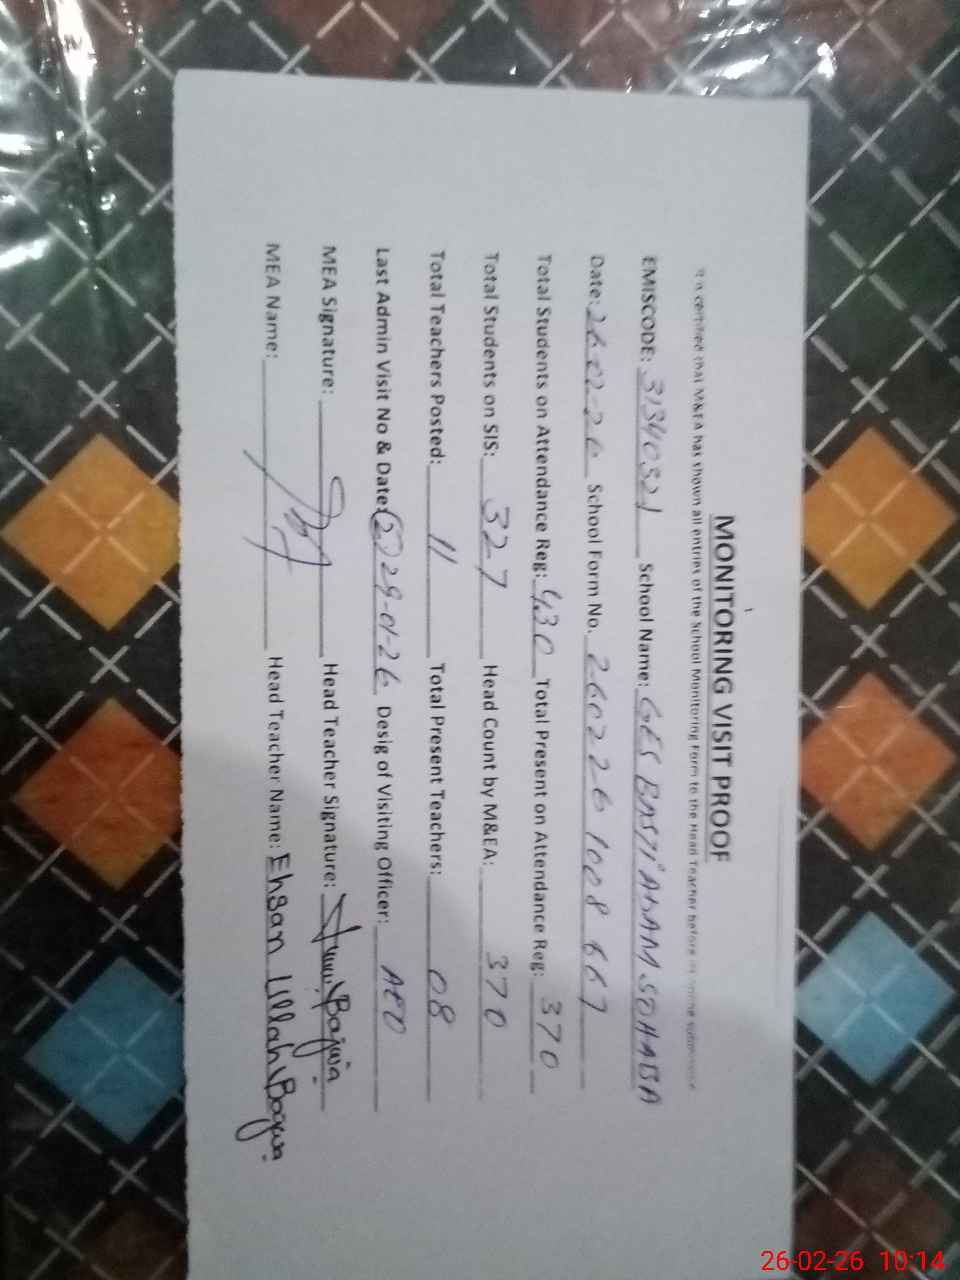 MONITORING VISIT PROOF
It is certified that M&EA has shown all entries of the School Monitoring Form to the Head Teacher before its online submission
EMISCODE: 31340321 School Name: GES BASTI ADAM SOHABA
Date: 26-02-26 School Form No. 2602261008667
Total Students on Attendance Reg: 430 Total Present on Attendance Reg: 370
Total Students on SIS: 327 Head Count by M&EA: 370
Total Teachers Posted: 11 Total Present Teachers: 08
Last Admin Visit No & Date: (2) 29-01-26 Desig of Visiting Officer: AEO
MEA Signature: Head Teacher Signature: Bajwa
MEA Name: Head Teacher Name: Ehsan Ullah Bajwa
26-02-26 10:14